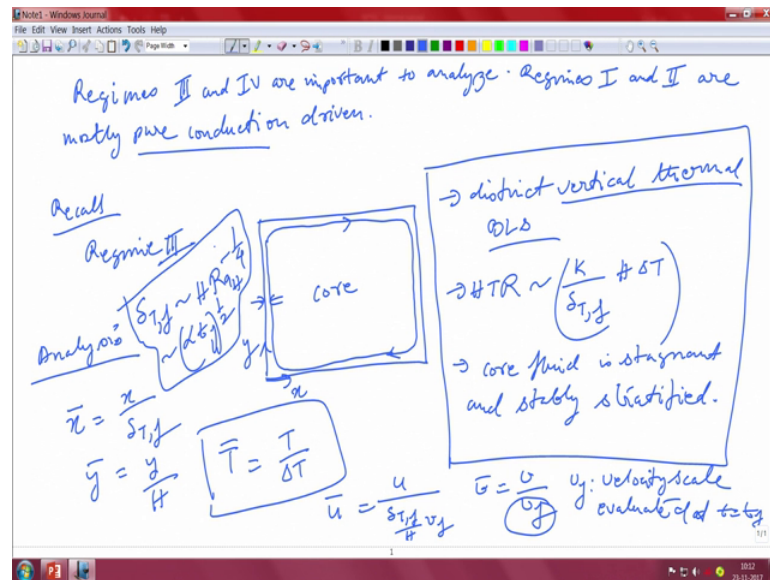 Note1 - Windows Journal
File Edit View Insert Actions Tools Help
Page Width
Regimes III and IV are important to analyze. Regimes I and II are
mostly pure conduction driven.
Recall
Regime III
δT,f ~ H RaH^-1/4
~ (αtf)^1/2
Analysis:
x̄ = x/δT,f
ȳ = y/H
T̄ = T/ΔT
core
y
x
→ distinct vertical thermal
BLs
→ HTR ~ (K/δT,f H ΔT)
→ core fluid is stagnant
and stably stratified.
ū = u/(δT,f/H vf)
v̄ = v/vf
vf: velocity scale
evaluated at t=tf
1/1
1
10:12
23-11-2017